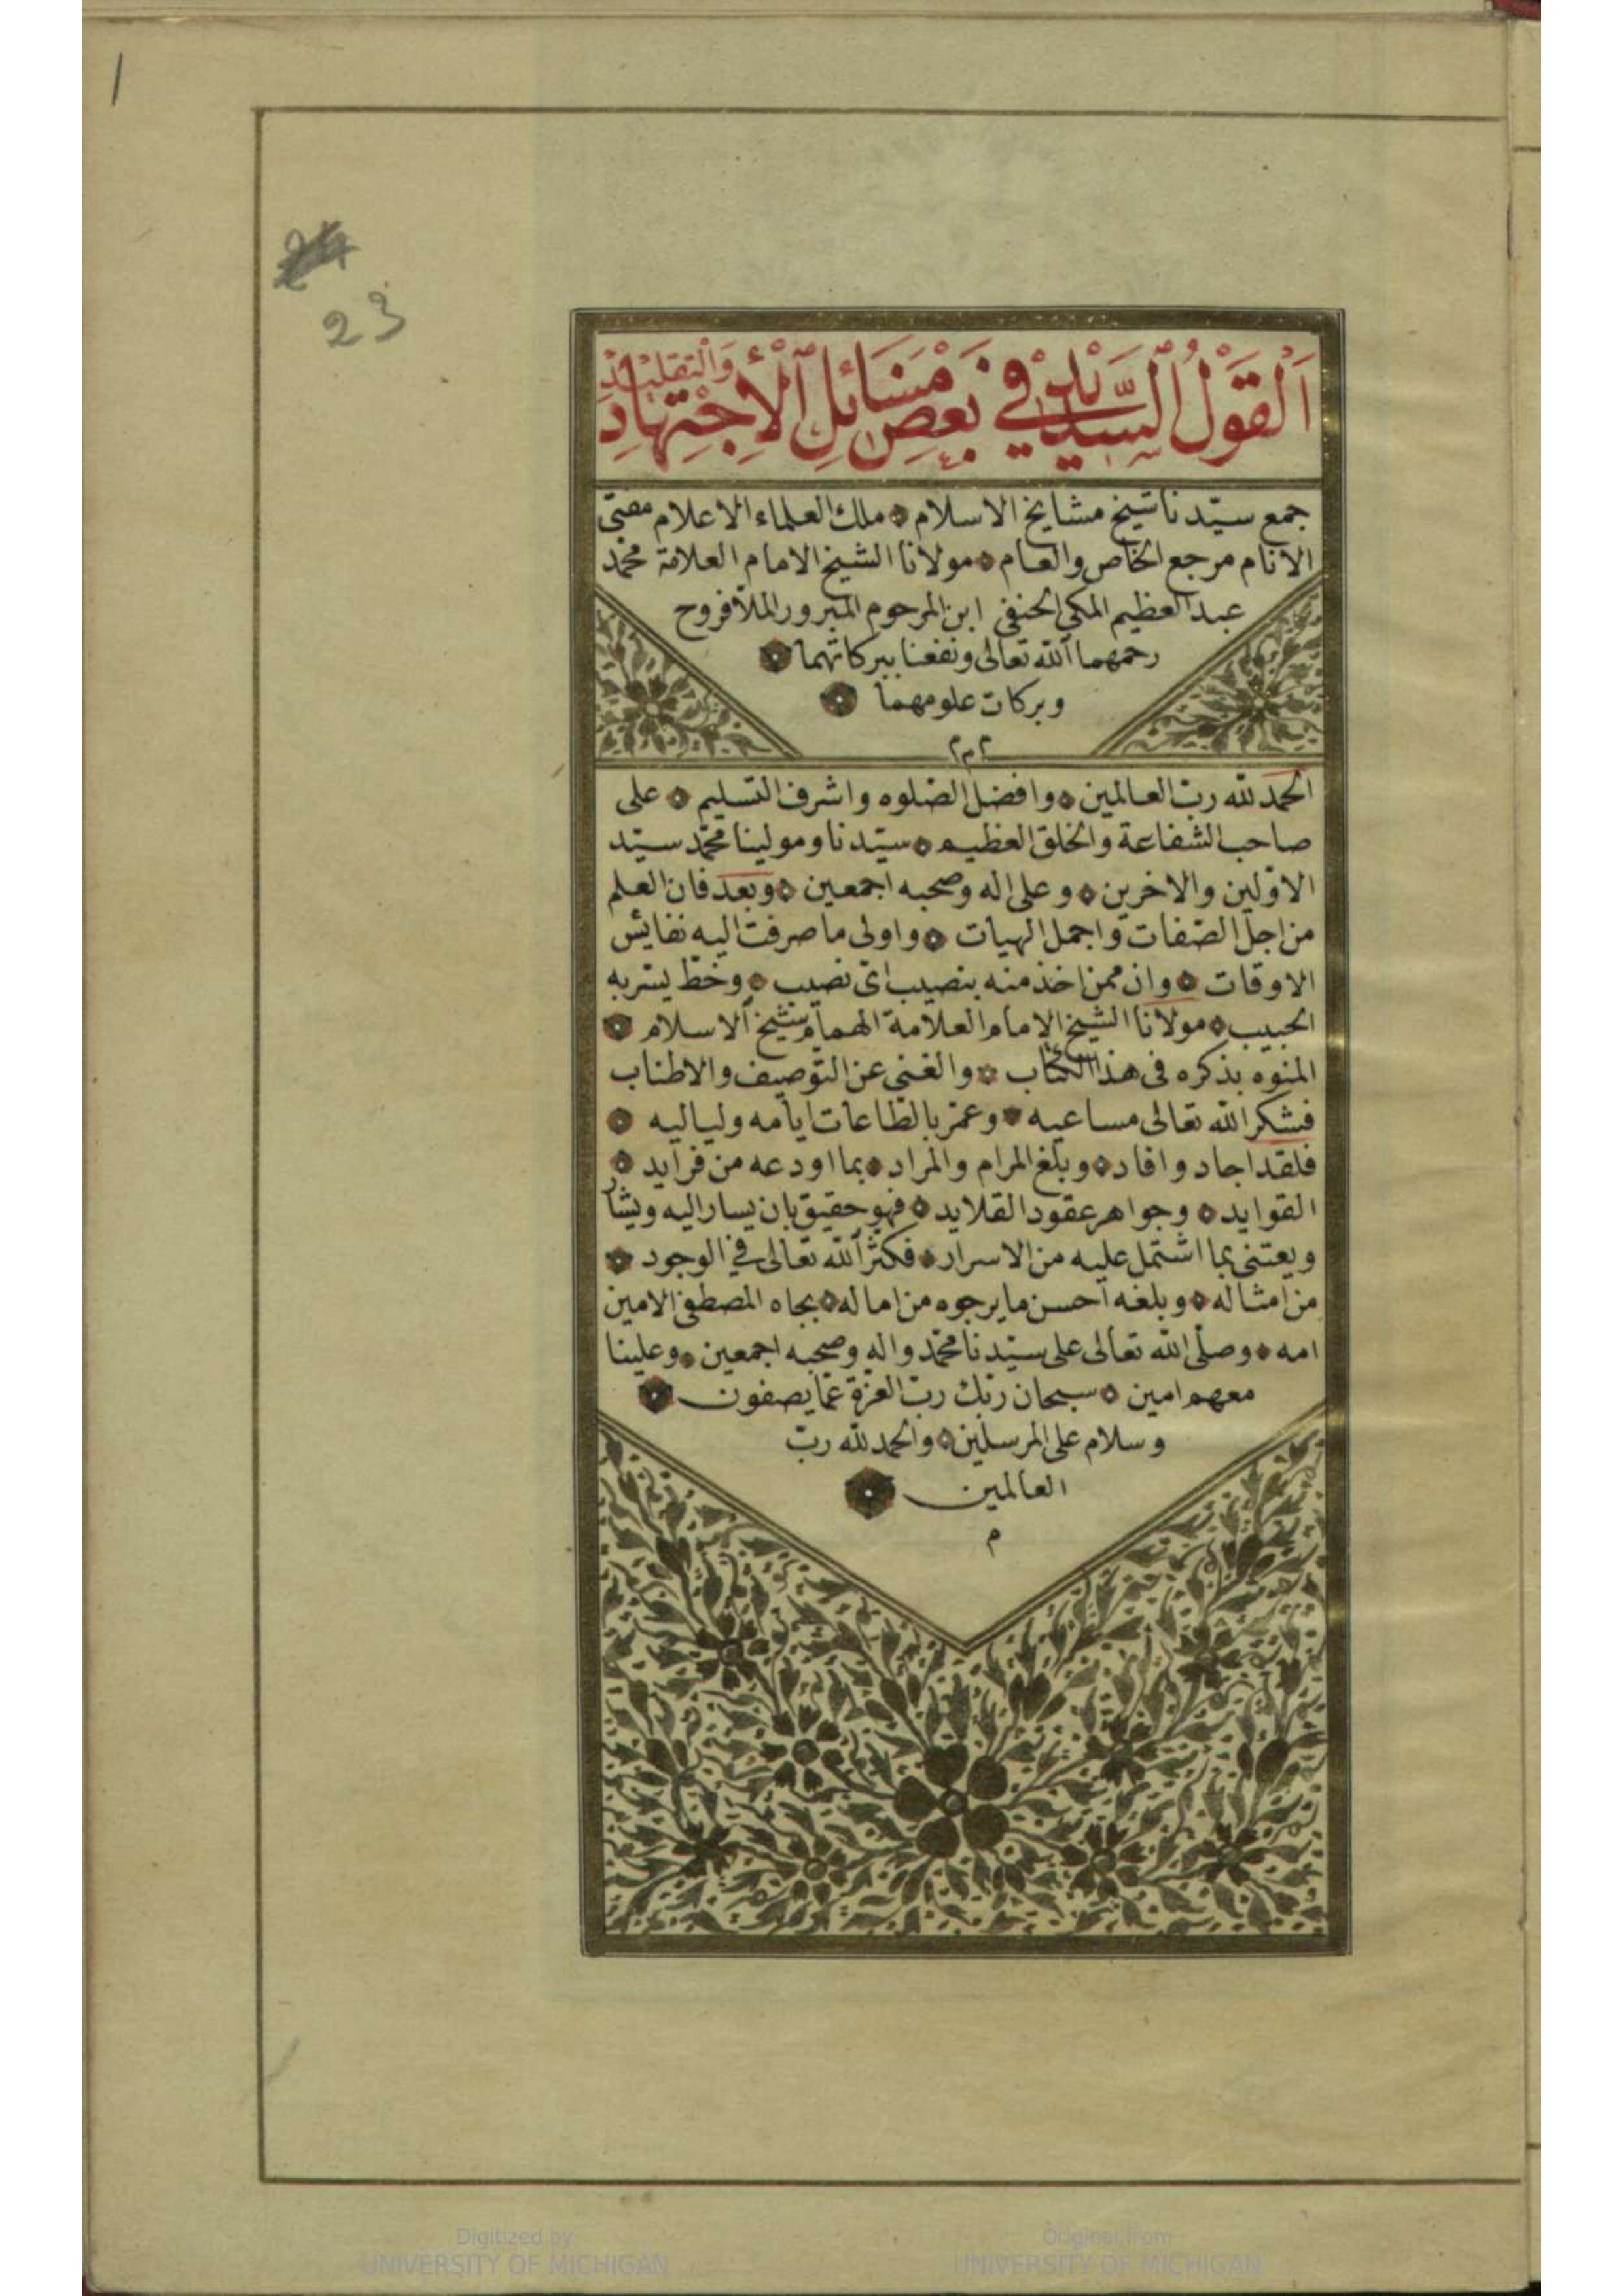 1
23
اَلْقَوْلُ الْسَّدِيدْ فِي بَعْضِ مَسَائِلِ الْأِجْتِهَادِ وَالْتَقْلِيدْ
جمع سيّدنا شيخ مشايخ الاسلام ملك العلماء الاعلام مفتى
الانام مرجع الخاص والعام مولانا الشيخ الامام العلامة محمّد
عبد العظيم المكى الحنفى ابن المرحوم المبرور الملا فروح
رحمهما الله تعالى ونفعنا ببركاتهما
وبركات علومهما
م م م
الحمد لله ربّ العالمين وافضل الصّلوه واشرف التسليم على
صاحب الشفاعة والخلق العظيم سيّدنا ومولينا محمّد سيّد
الاوّلين والاخرين وعلى اله وصحبه اجمعين وبعد فان العلم
من اجلّ الصّفات واجمل الهيات واولى ما صرفت اليه نفايس
الاوقات وان ممن اخذ منه بنصيب اىّ نصيب وخظ يسّر به
الحبيب مولانا الشيخ الامام العلامة الهمام شيخ الاسلام
المنوه بذكره فى هذا الكتاب والغنى عن التوصيف والاطناب
فشكر الله تعالى مساعيه وعمّر بالطاعات ايامه ولياليه
فلقد اجاد وافاد وبلّغ المرام والمراد بما اودعه من فرايد
الفوايد وجواهر عقود القلايد فهو حقيق بان يسار اليه ويشار
ويعتنى بما اشتمل عليه من الاسرار فكثّر الله تعالى في الوجود
من امثاله وبلغه احسن ما يرجوه من اماله بجاه المصطفى الامين
امه وصلّى الله تعالى على سيّدنا محمّد واله وصحبه اجمعين وعلينا
معهم امين سبحان ربّك ربّ العزة عمّا يصفون
وسلام على المرسلين والحمد لله ربّ
العالمين
م
Digitized by
UNIVERSITY OF MICHIGAN
Original from
UNIVERSITY OF MICHIGAN